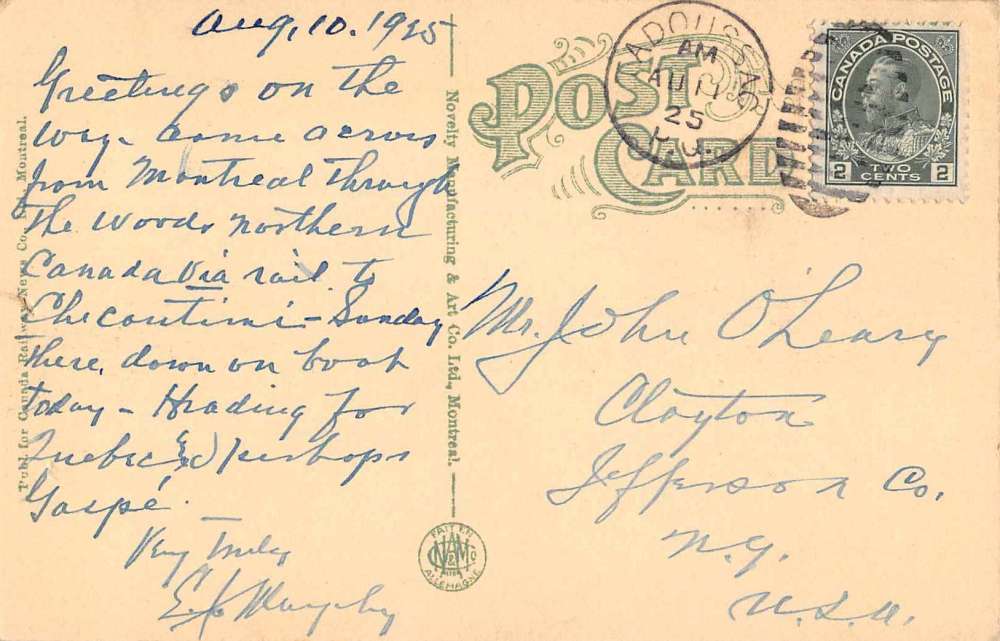 Aug, 10. 1925
Greetings on the
way - came across
from Montreal through
the woods northern
Canada via rail to
Chicoutimi - Sunday
there, down on boat
today - Heading for
Quebec & perhaps
Gaspé.
Very Truly
Murphy
Publ. for Canada Railway News Co., Montreal.
Novelty Manufacturing & Art Co. Ltd., Montreal.
POST CARD
TADOUSSAC
AM
AU 11
25
CANADA POSTAGE
2 TWO CENTS 2
Mr. John O'Leary
Clayton
Jefferson Co.
N.Y.
U.S.A.
FAIT EN
ALLEMAGNE